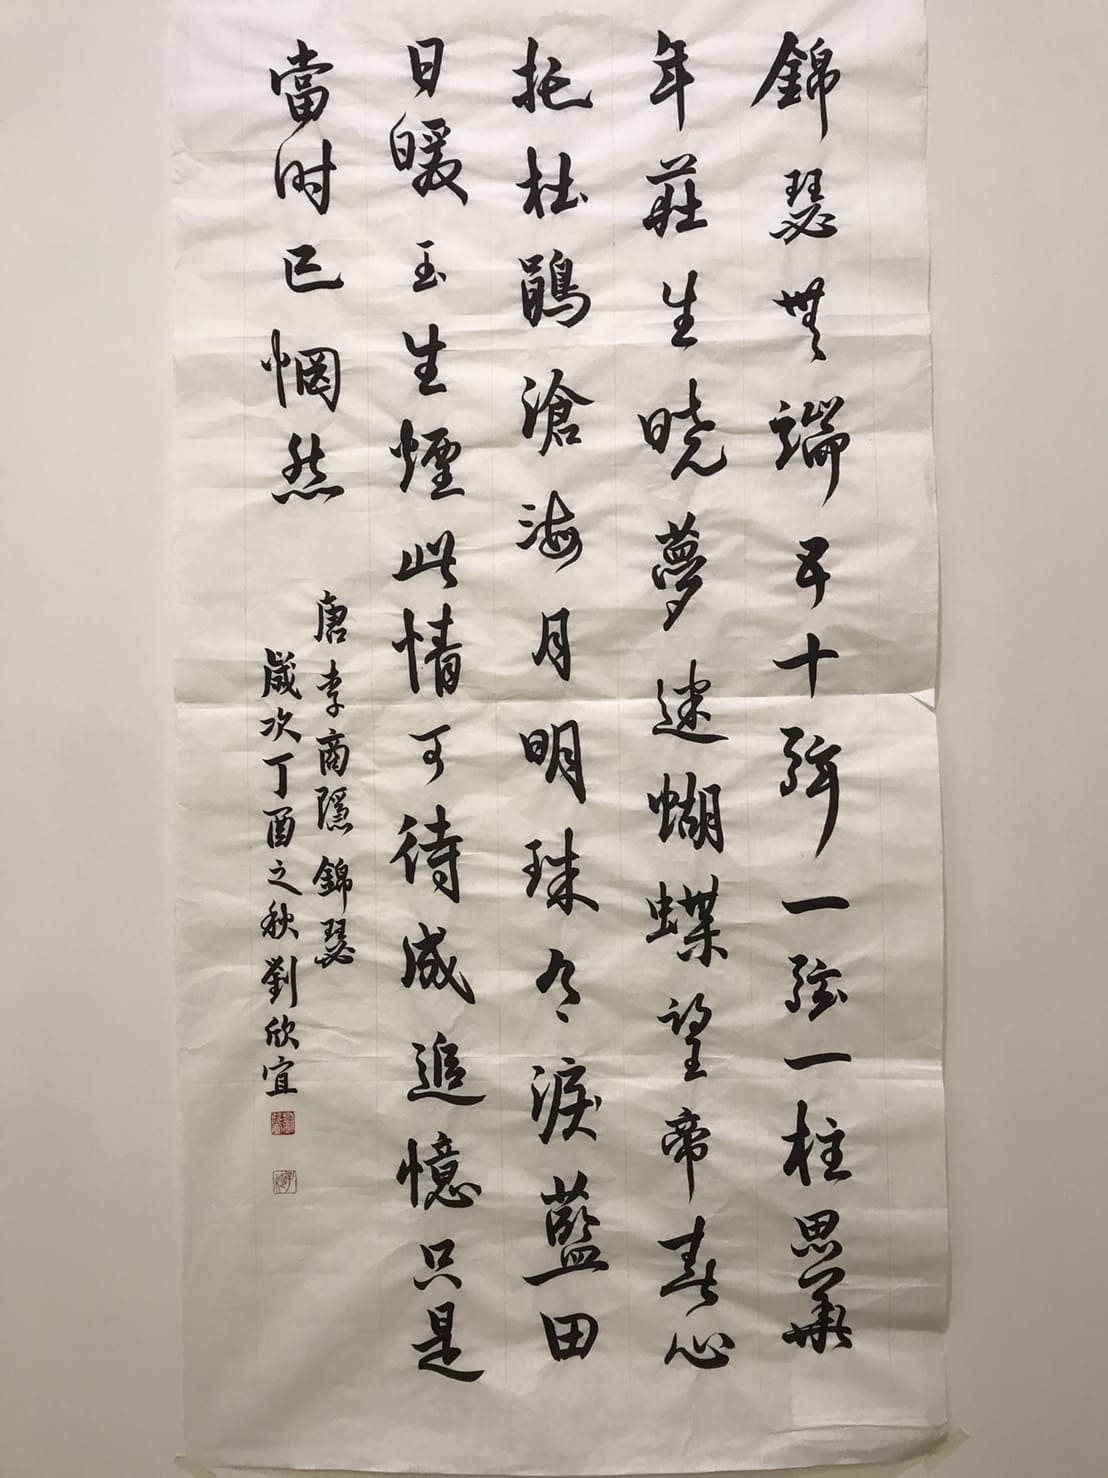 錦瑟無端五十弦一弦一柱思華
年莊生曉夢迷蝴蝶望帝春心
托杜鵑滄海月明珠有淚藍田
日暖玉生煙此情可待成追憶只是
當时已惘然
唐李商隱錦瑟
歲次丁酉之秋劉欣宜